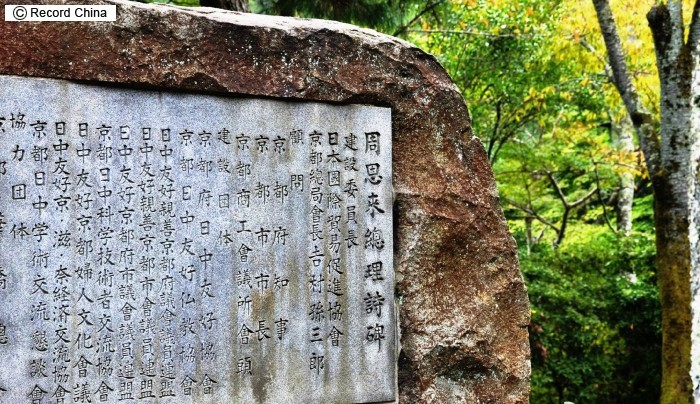 © Record China
周恩來總理詩碑
建設委員長
日本国際貿易促進協會
京都総局會長吉村孫三郎
顧問
京都府知事
京都市市長
京都商工會議所會頭
建設団体
京都府日中友好協會
京都日中友好仏教協會
日中友好親善京都府議會議員連盟
日中友好親善京都市會議員連盟
日中友好京都府市議會議員連盟
京都日中科学技術者交流協會
日中友好京都婦人文化會議
日中友好京・滋・奈経済交流協會
京都日中学術交流懇談會
協力団体